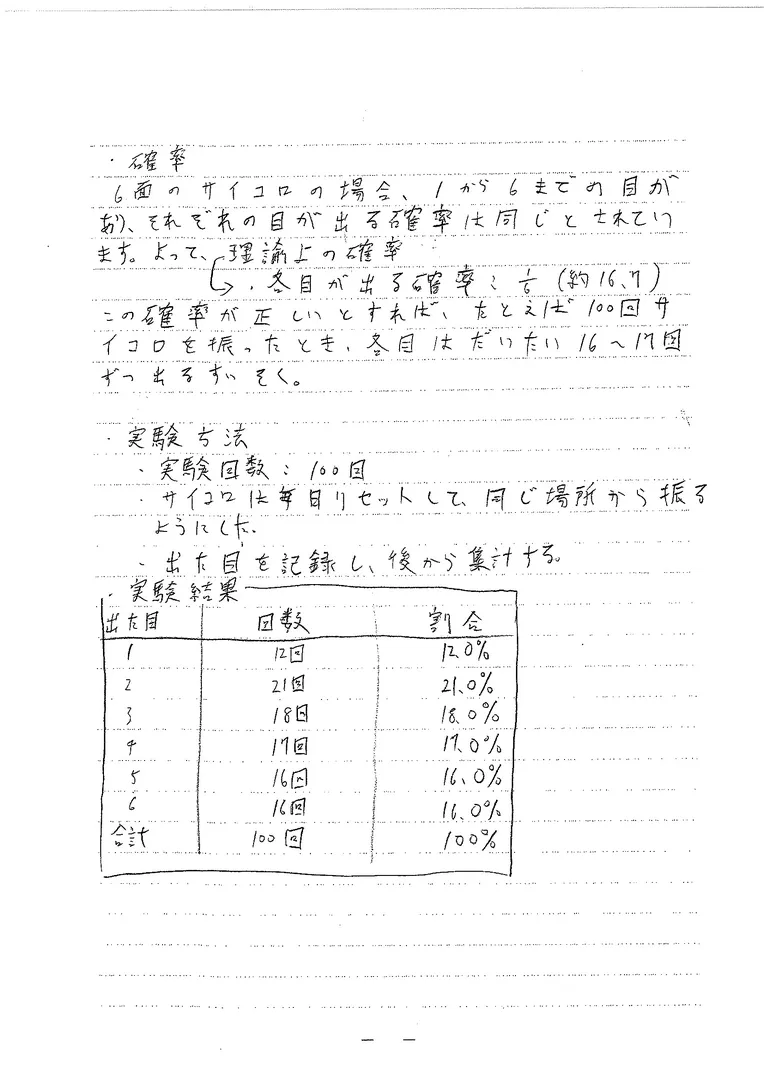 ・確率
6面のサイコロの場合、1から6までの目が
あり、それぞれの目が出る確率は同じとされてい
ます。よって、理論上の確率
→・各目が出る確率：1/6 (約16.7)
この確率が正しいとすれば、たとえば100回サ
イコロを振ったとき、各目はだいたい16〜17回
ずつ出るすいそく。
・実験方法
・実験回数：100回
・サイコロは毎回リセットして、同じ場所から振る
ようにした。
・出た目を記録し、後から集計する。
・実験結果
出た目 回数 割合
1 12回 12.0%
2 21回 21.0%
3 18回 18.0%
4 17回 17.0%
5 16回 16.0%
6 16回 16.0%
合計 100回 100%